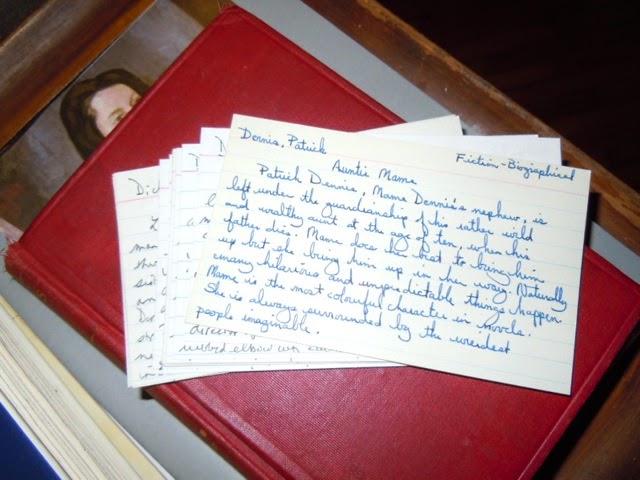 Dennis, Patrick
Fiction-Biographical
Auntie Mame
Patrick Dennis, Mame Dennis's nephew, is
left under the guardianship of his rather wild
and wealthy aunt at the age of ten, when his
father dies. Mame does her best to bring him
up but she brings him up in her way. Naturally
many hilarious and unpredictable things happen.
Mame is the most colourful character in novels.
She is always surrounded by the weirdest
people imaginable.